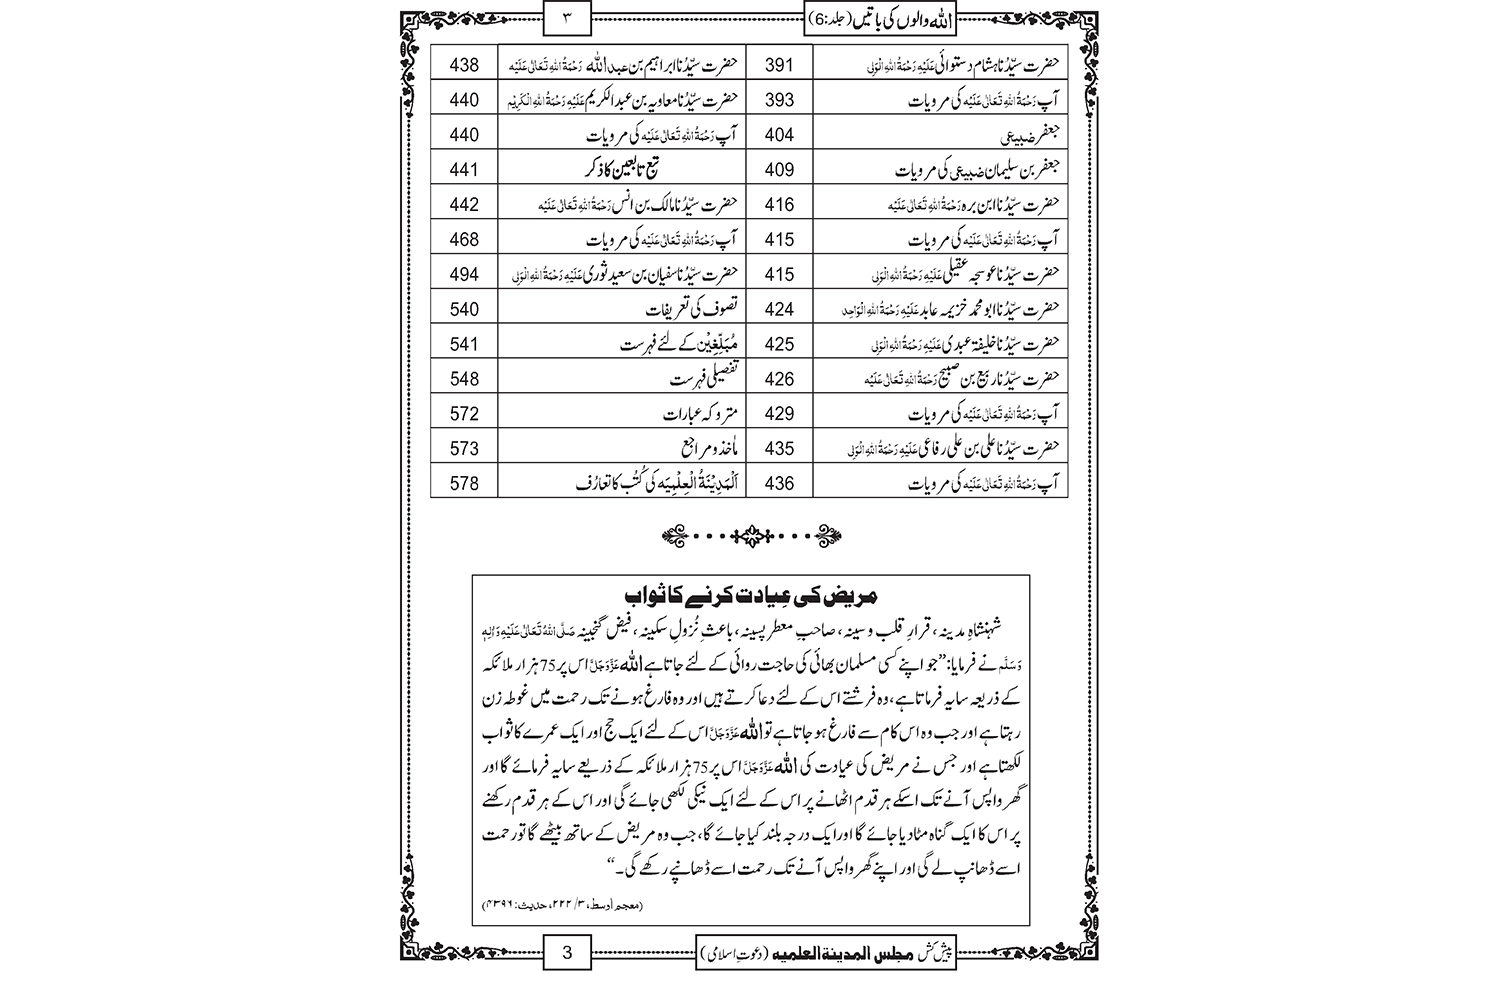 اللہ والوں کی باتیں (جلد:6)
۳
حضرت سیِّدُنا ہشام دستوائی عَلَیْہِ رَحْمَۃُ اللہِ الْوَلِی 391 حضرت سیِّدُنا ابراہیم بن عبداللہ رَحْمَۃُ اللہِ تَعَالٰی عَلَیْہ 438
آپ رَحْمَۃُ اللہِ تَعَالٰی عَلَیْہ کی مرویات 393 حضرت سیِّدُنا معاویہ بن عبدالکریم عَلَیْہِ رَحْمَۃُ اللہِ الْکَرِیْم 440
جعفر ضبیعی 404 آپ رَحْمَۃُ اللہِ تَعَالٰی عَلَیْہ کی مرویات 440
جعفر بن سلیمان ضبیعی کی مرویات 409 تبع تابعین کا ذکر 441
حضرت سیِّدُنا ابن برہ رَحْمَۃُ اللہِ تَعَالٰی عَلَیْہ 416 حضرت سیِّدُنا مالک بن انس رَحْمَۃُ اللہِ تَعَالٰی عَلَیْہ 442
آپ رَحْمَۃُ اللہِ تَعَالٰی عَلَیْہ کی مرویات 415 آپ رَحْمَۃُ اللہِ تَعَالٰی عَلَیْہ کی مرویات 468
حضرت سیِّدُنا عوسجہ عقیلی عَلَیْہِ رَحْمَۃُ اللہِ الْوَلِی 415 حضرت سیِّدُنا سفیان بن سعید ثوری عَلَیْہِ رَحْمَۃُ اللہِ الْوَلِی 494
حضرت سیِّدُنا ابو محمد خزیمہ عابد عَلَیْہِ رَحْمَۃُ اللہِ الْوَاحِد 424 تصوف کی تعریفات 540
حضرت سیِّدُنا خلیفۃ عبدی عَلَیْہِ رَحْمَۃُ اللہِ الْوَلِی 425 مُبَلِّغِیْن کے لئے فہرست 541
حضرت سیِّدُنا ربیع بن صبیح رَحْمَۃُ اللہِ تَعَالٰی عَلَیْہ 426 تفصیلی فہرست 548
آپ رَحْمَۃُ اللہِ تَعَالٰی عَلَیْہ کی مرویات 429 متروکہ عبارات 572
حضرت سیِّدُنا علی بن علی رفاعی عَلَیْہِ رَحْمَۃُ اللہِ الْوَلِی 435 مأخذ و مراجع 573
آپ رَحْمَۃُ اللہِ تَعَالٰی عَلَیْہ کی مرویات 436 اَلْمَدِیْنَۃُ الْعِلْمِیَہ کی کُتُب کا تعارُف 578
مریض کی عِیادت کرنے کا ثواب
شہنشاہِ مدینہ، قرارِ قلب و سینہ، صاحبِ معطر پسینہ، باعثِ نُزولِ سکینہ، فیض گنجینہ صَلَّی اللہُ تَعَالٰی عَلَیْہِ وَاٰلِہٖ
وَسَلَّم نے فرمایا: ”جو اپنے کسی مسلمان بھائی کی حاجت روائی کے لئے جاتا ہے اللہ عَزَّوَجَلَّ اس پر 75 ہزار ملائکہ
کے ذریعہ سایہ فرماتا ہے، وہ فرشتے اس کے لئے دعا کرتے ہیں اور وہ فارغ ہونے تک رحمت میں غوطہ زن
رہتا ہے اور جب وہ اس کام سے فارغ ہو جاتا ہے تو اللہ عَزَّوَجَلَّ اس کے لئے ایک حج اور ایک عمرے کا ثواب
لکھتا ہے اور جس نے مریض کی عیادت کی اللہ عَزَّوَجَلَّ اس پر 75 ہزار ملائکہ کے ذریعے سایہ فرمائے گا اور
گھر واپس آنے تک اسکے ہر قدم اٹھانے پر اس کے لئے ایک نیکی لکھی جائے گی اور اس کے ہر قدم رکھنے
پر اس کا ایک گناہ مٹا دیا جائے گا اور ایک درجہ بلند کیا جائے گا، جب وہ مریض کے ساتھ بیٹھے گا تو رحمت
اسے ڈھانپ لے گی اور اپنے گھر واپس آنے تک رحمت اسے ڈھانپے رکھے گی۔“
(معجم اوسط، ۳/ ۲۲۲، حدیث: ۴۳۹۶)
پیش کش مجلس المدینۃ العلمیہ (دعوتِ اسلامی)
3